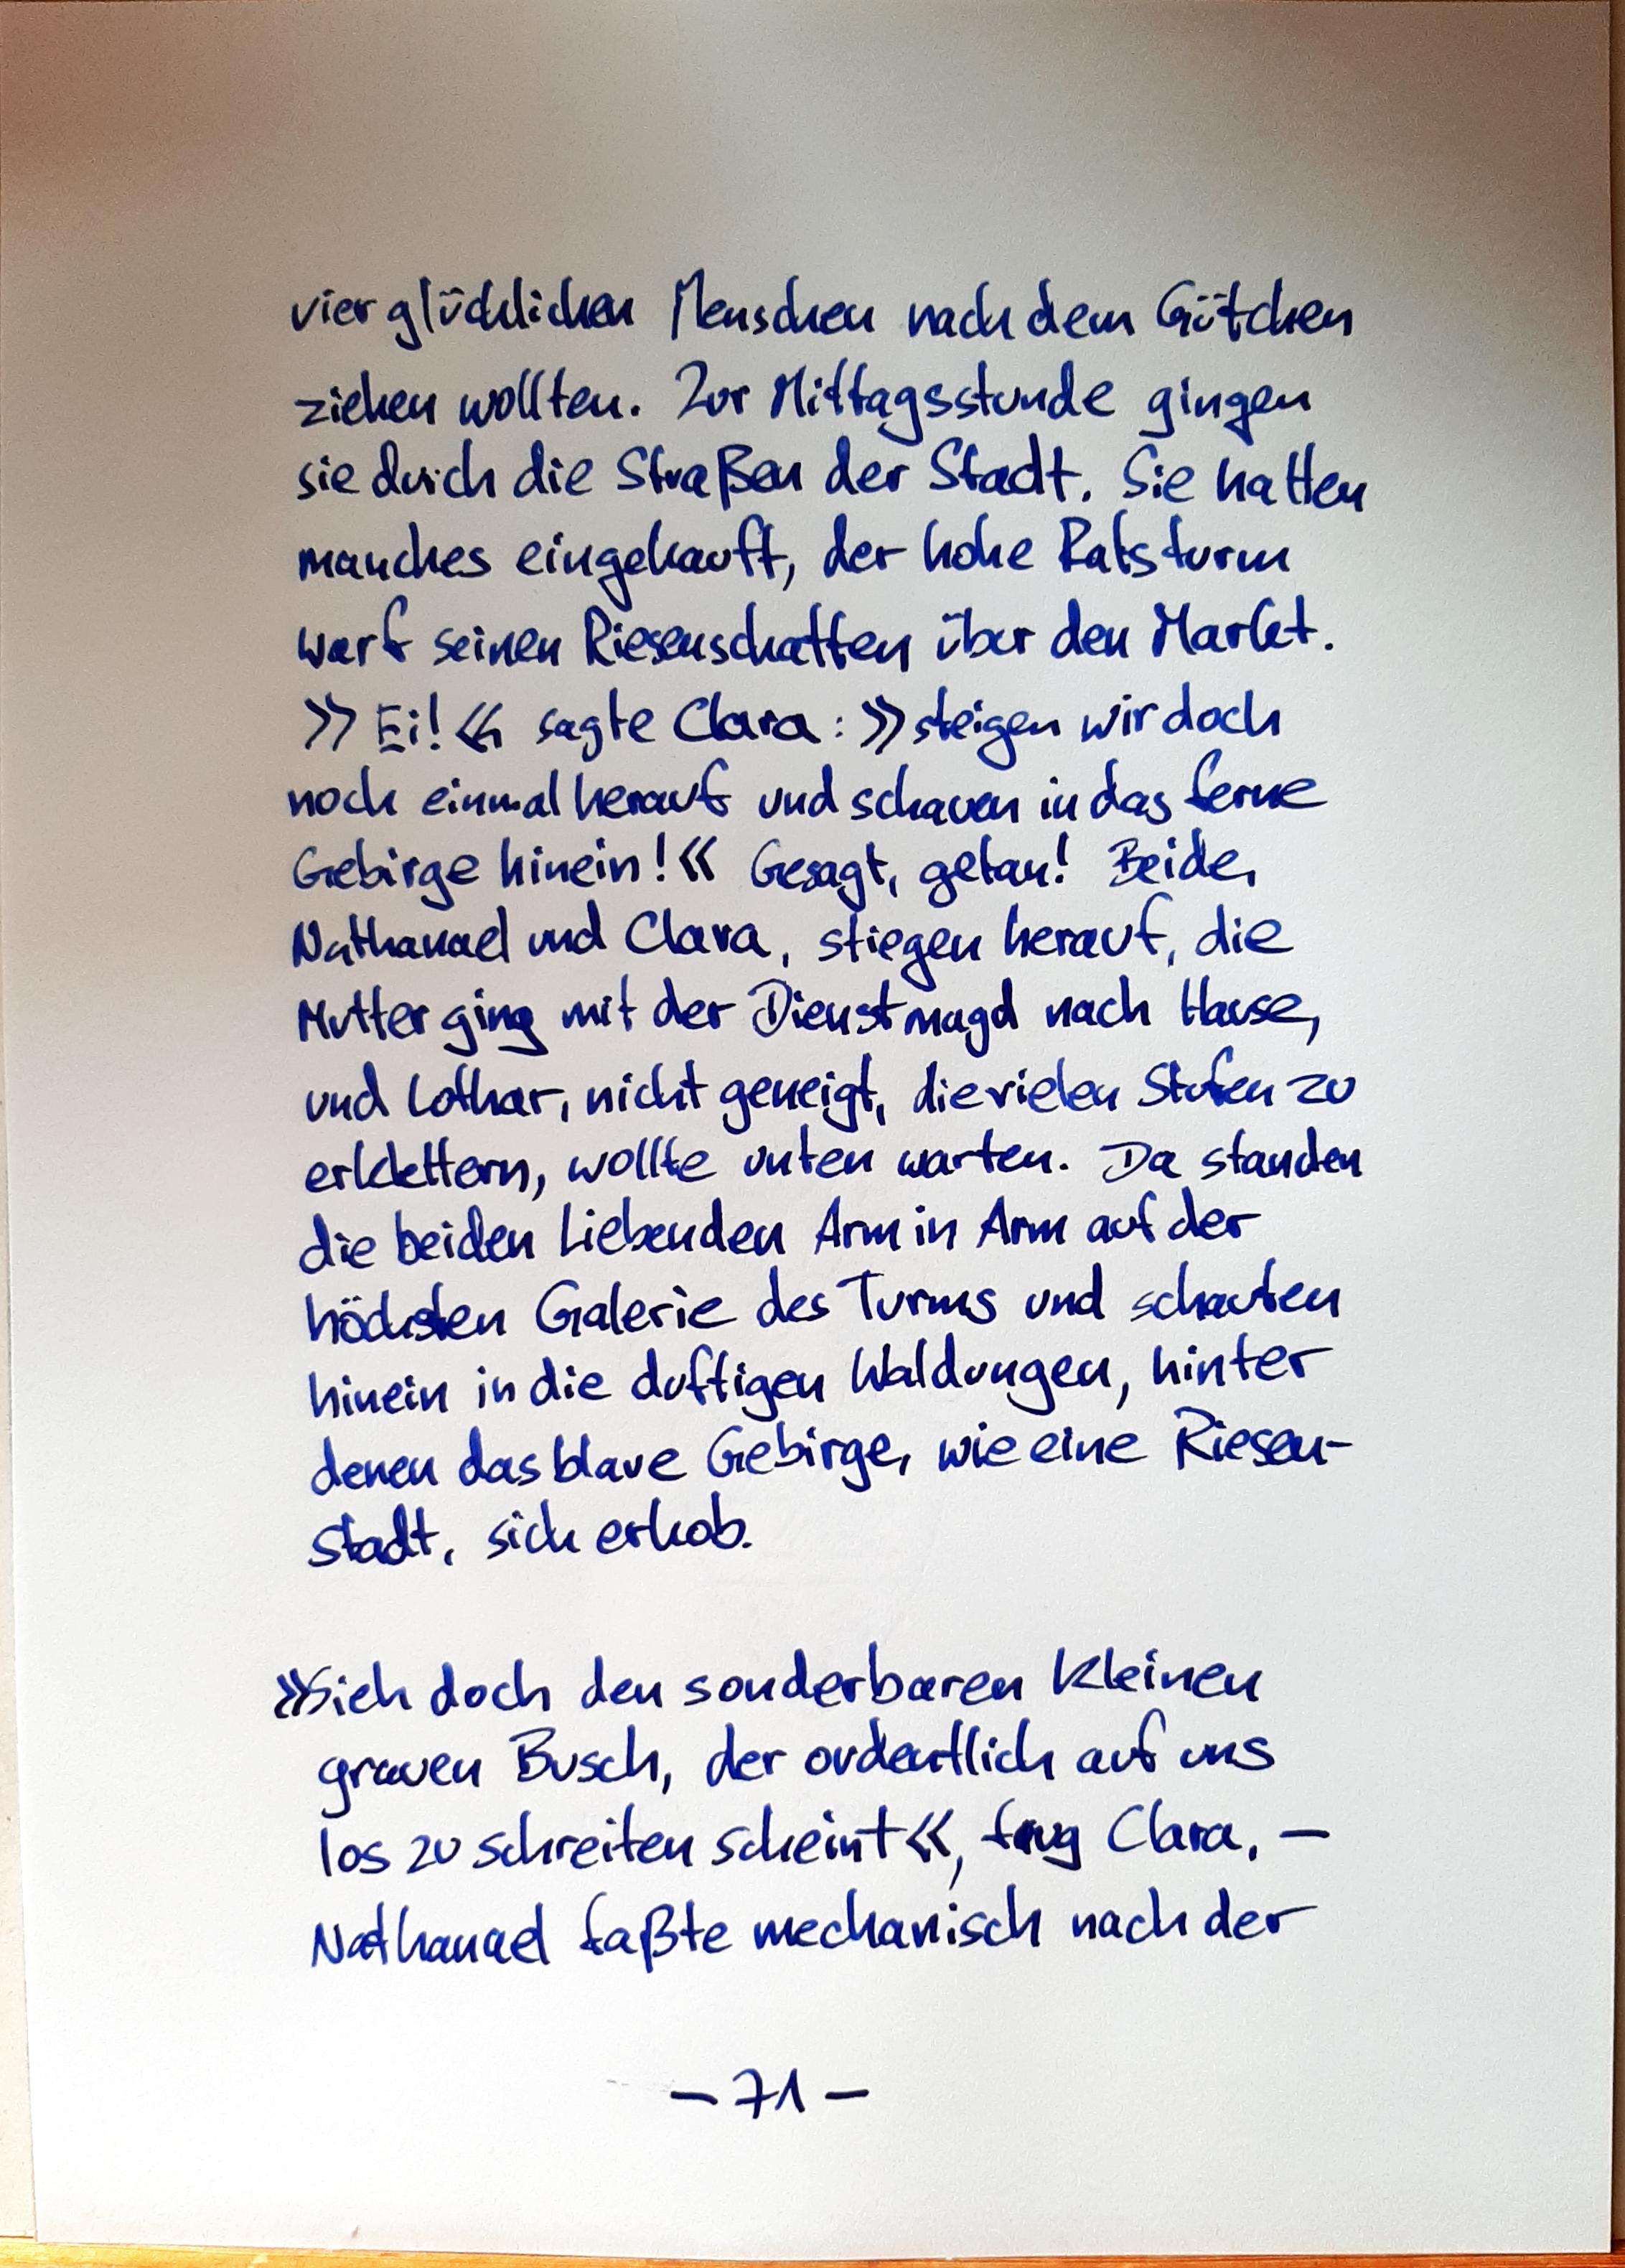 vier glücklichen Menschen nach dem Gütchen
ziehen wollten. Zur Mittagsstunde gingen
sie durch die Straßen der Stadt. Sie hatten
manches eingekauft, der hohe Ratsturm
warf seinen Riesenschatten über den Markt.
»Ei!« sagte Clara: »steigen wir doch
noch einmal herauf und schauen in das ferne
Gebirge hinein!« Gesagt, getan! Beide,
Nathanael und Clara, stiegen herauf, die
Mutter ging mit der Dienstmagd nach Hause,
und Lothar, nicht geneigt, die vielen Stufen zu
erklettern, wollte unten warten. Da standen
die beiden Liebenden Arm in Arm auf der
höchsten Galerie des Turms und schauten
hinein in die duftigen Waldungen, hinter
denen das blaue Gebirge, wie eine Riesen-
stadt, sich erhob.
»Sieh doch den sonderbaren kleinen
grauen Busch, der ordentlich auf uns
los zu schreiten scheint«, frug Clara. –
Nathanael faßte mechanisch nach der
– 71 –